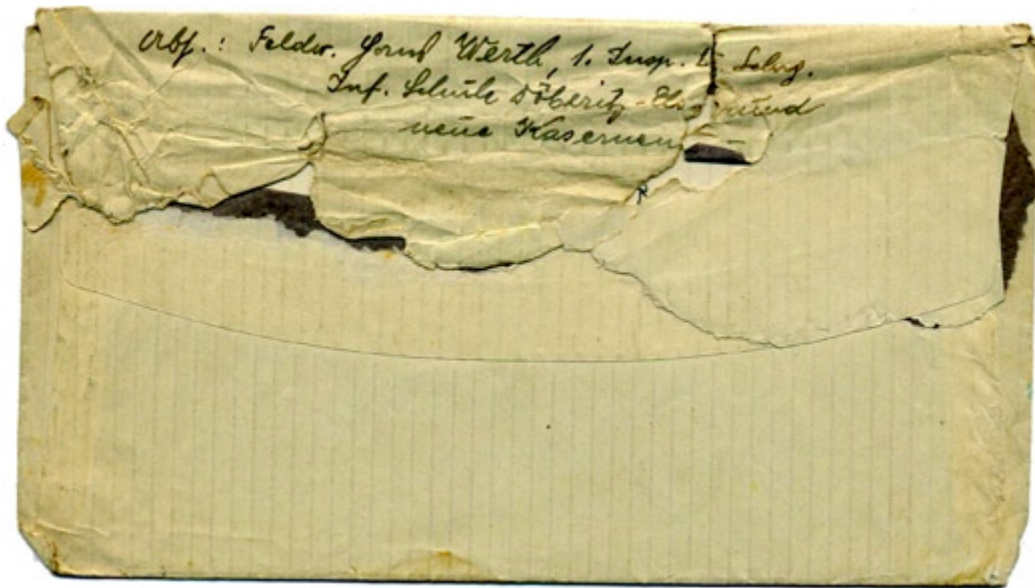 Abs.: Feldw. Horst Werth, 1. Insp. Lehrg.
Inf. Schule Döberitz-Elsgrund
neue Kasernen